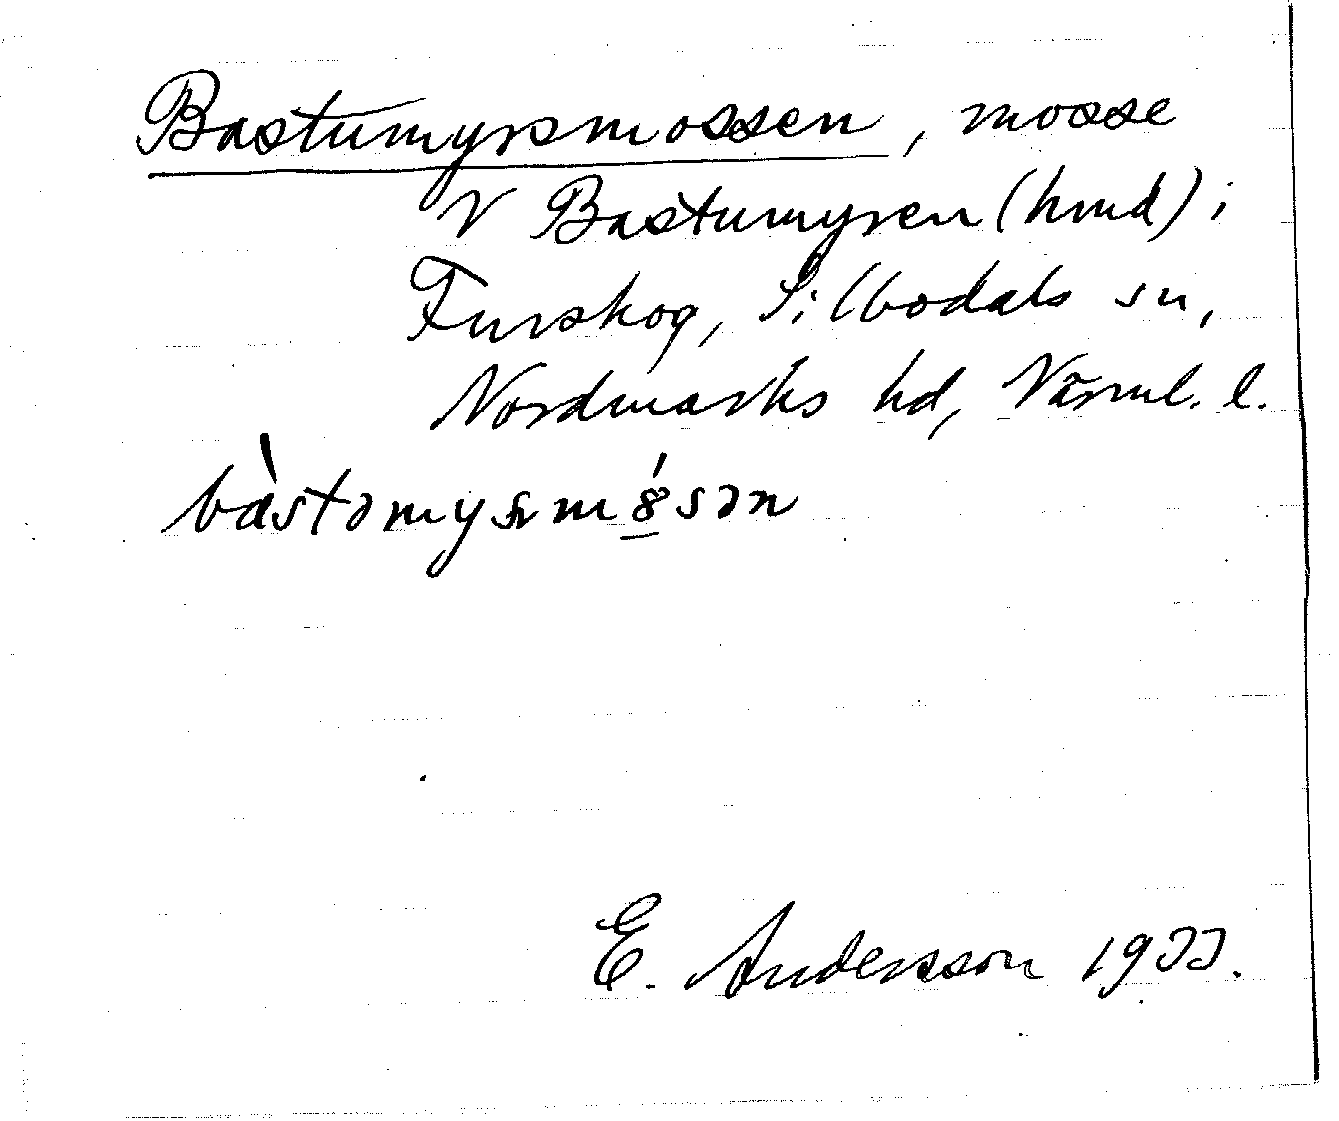 Bastumyrsmossen, mosse
V Bastumyren (hmd) i
Furskog, Silbodals sn,
Nordmarks hd, Värml. l.
bàstomysmósən
E. Andersson 1933.